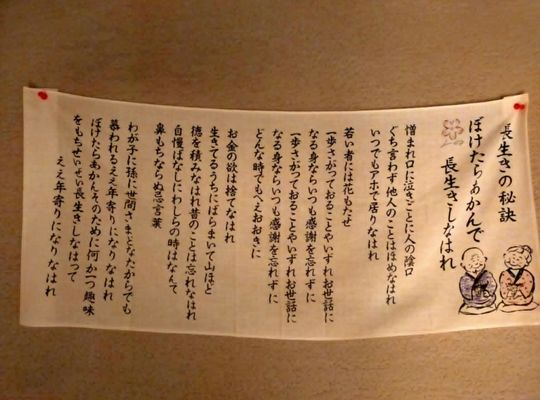 長生きの秘訣
ぼけたらあかんで
長生きしなはれ
憎まれ口に泣きごとに人の陰口
ぐち言わず他人のことはほめなはれ
いつでもアホで居りなはれ
若い者には花もたせ
一歩さがっておることやいずれお世話に
なる身ならいつも感謝を忘れずに
一歩さがっておることやいずれお世話に
なる身ならいつも感謝を忘れずに
どんな時でもへえおおきに
お金の欲は捨てなはれ
生きてるうちにばらまいて山ほど
徳を積みなはれ昔のことは忘れなはれ
自慢ばなしにわしらの時はなんて
鼻もちならぬ忌言葉
わが子に孫に世間さまどなたからでも
慕われるええ年寄りになりなはれ
ぼけたらあかんそのために何か一つ趣味
をもちせいぜい長生きしなはって
ええ年寄りになりなはれ